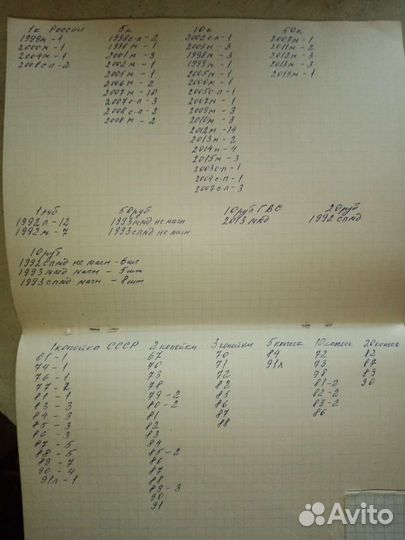 1к России
1999м - 1
2000м - 1
2004м - 1
2008с-п - 2
5к
1998с-п - 2
1998м - 1
2001м - 3
2002м - 1
2005м - 1
2006м - 2
2007м - 10
2007с-п - 3
2008с-п - 2
2008м - 2
10к
2002с-п - 1
2002м - 3
1998м - 3
1999м - 1
2005м - 1
2006м - 1
2005с-п - 1
2007м - 1
2009м - 3
2010м - 3
2012м - 14
2013м - 2
2014м - 4
2015м - 3
2003с-п - 1
2004с-п - 1
2007с-п - 3
50к
2007м - 1
2011м - 2
2012м - 3
2013м - 3
2015м - 1
1 руб
1992л - 12
1992м - 7
50 руб
1993ммд не магн
1993спмд не магн
10 руб ГВС
2013 ммд
20 руб
1992 спмд
10 руб
1992 спмд не магн - 6шт
1993 ммд магн - 5 шт
1993 спмд магн - 8 шт
1 копейка СССР
61 - 1
74 - 1
76 - 1
77 - 2
81 - 1
83 - 3
84 - 3
85 - 3
86 - 3
87 - 5
88 - 5
89 - 7
90 - 4
91л - 1
2 копейки
67
70
73
72
78
79 - 2
80 - 2
82
83
84
85 - 2
86
87
88
89 - 3
90
91
3 копейки
70
71
82
85
86
87
88
5 копеек
84
91л
10 копеек
72
73
78
81 - 2
82 - 2
83 - 2
86
20 копеек
82
87
83
90
Avito